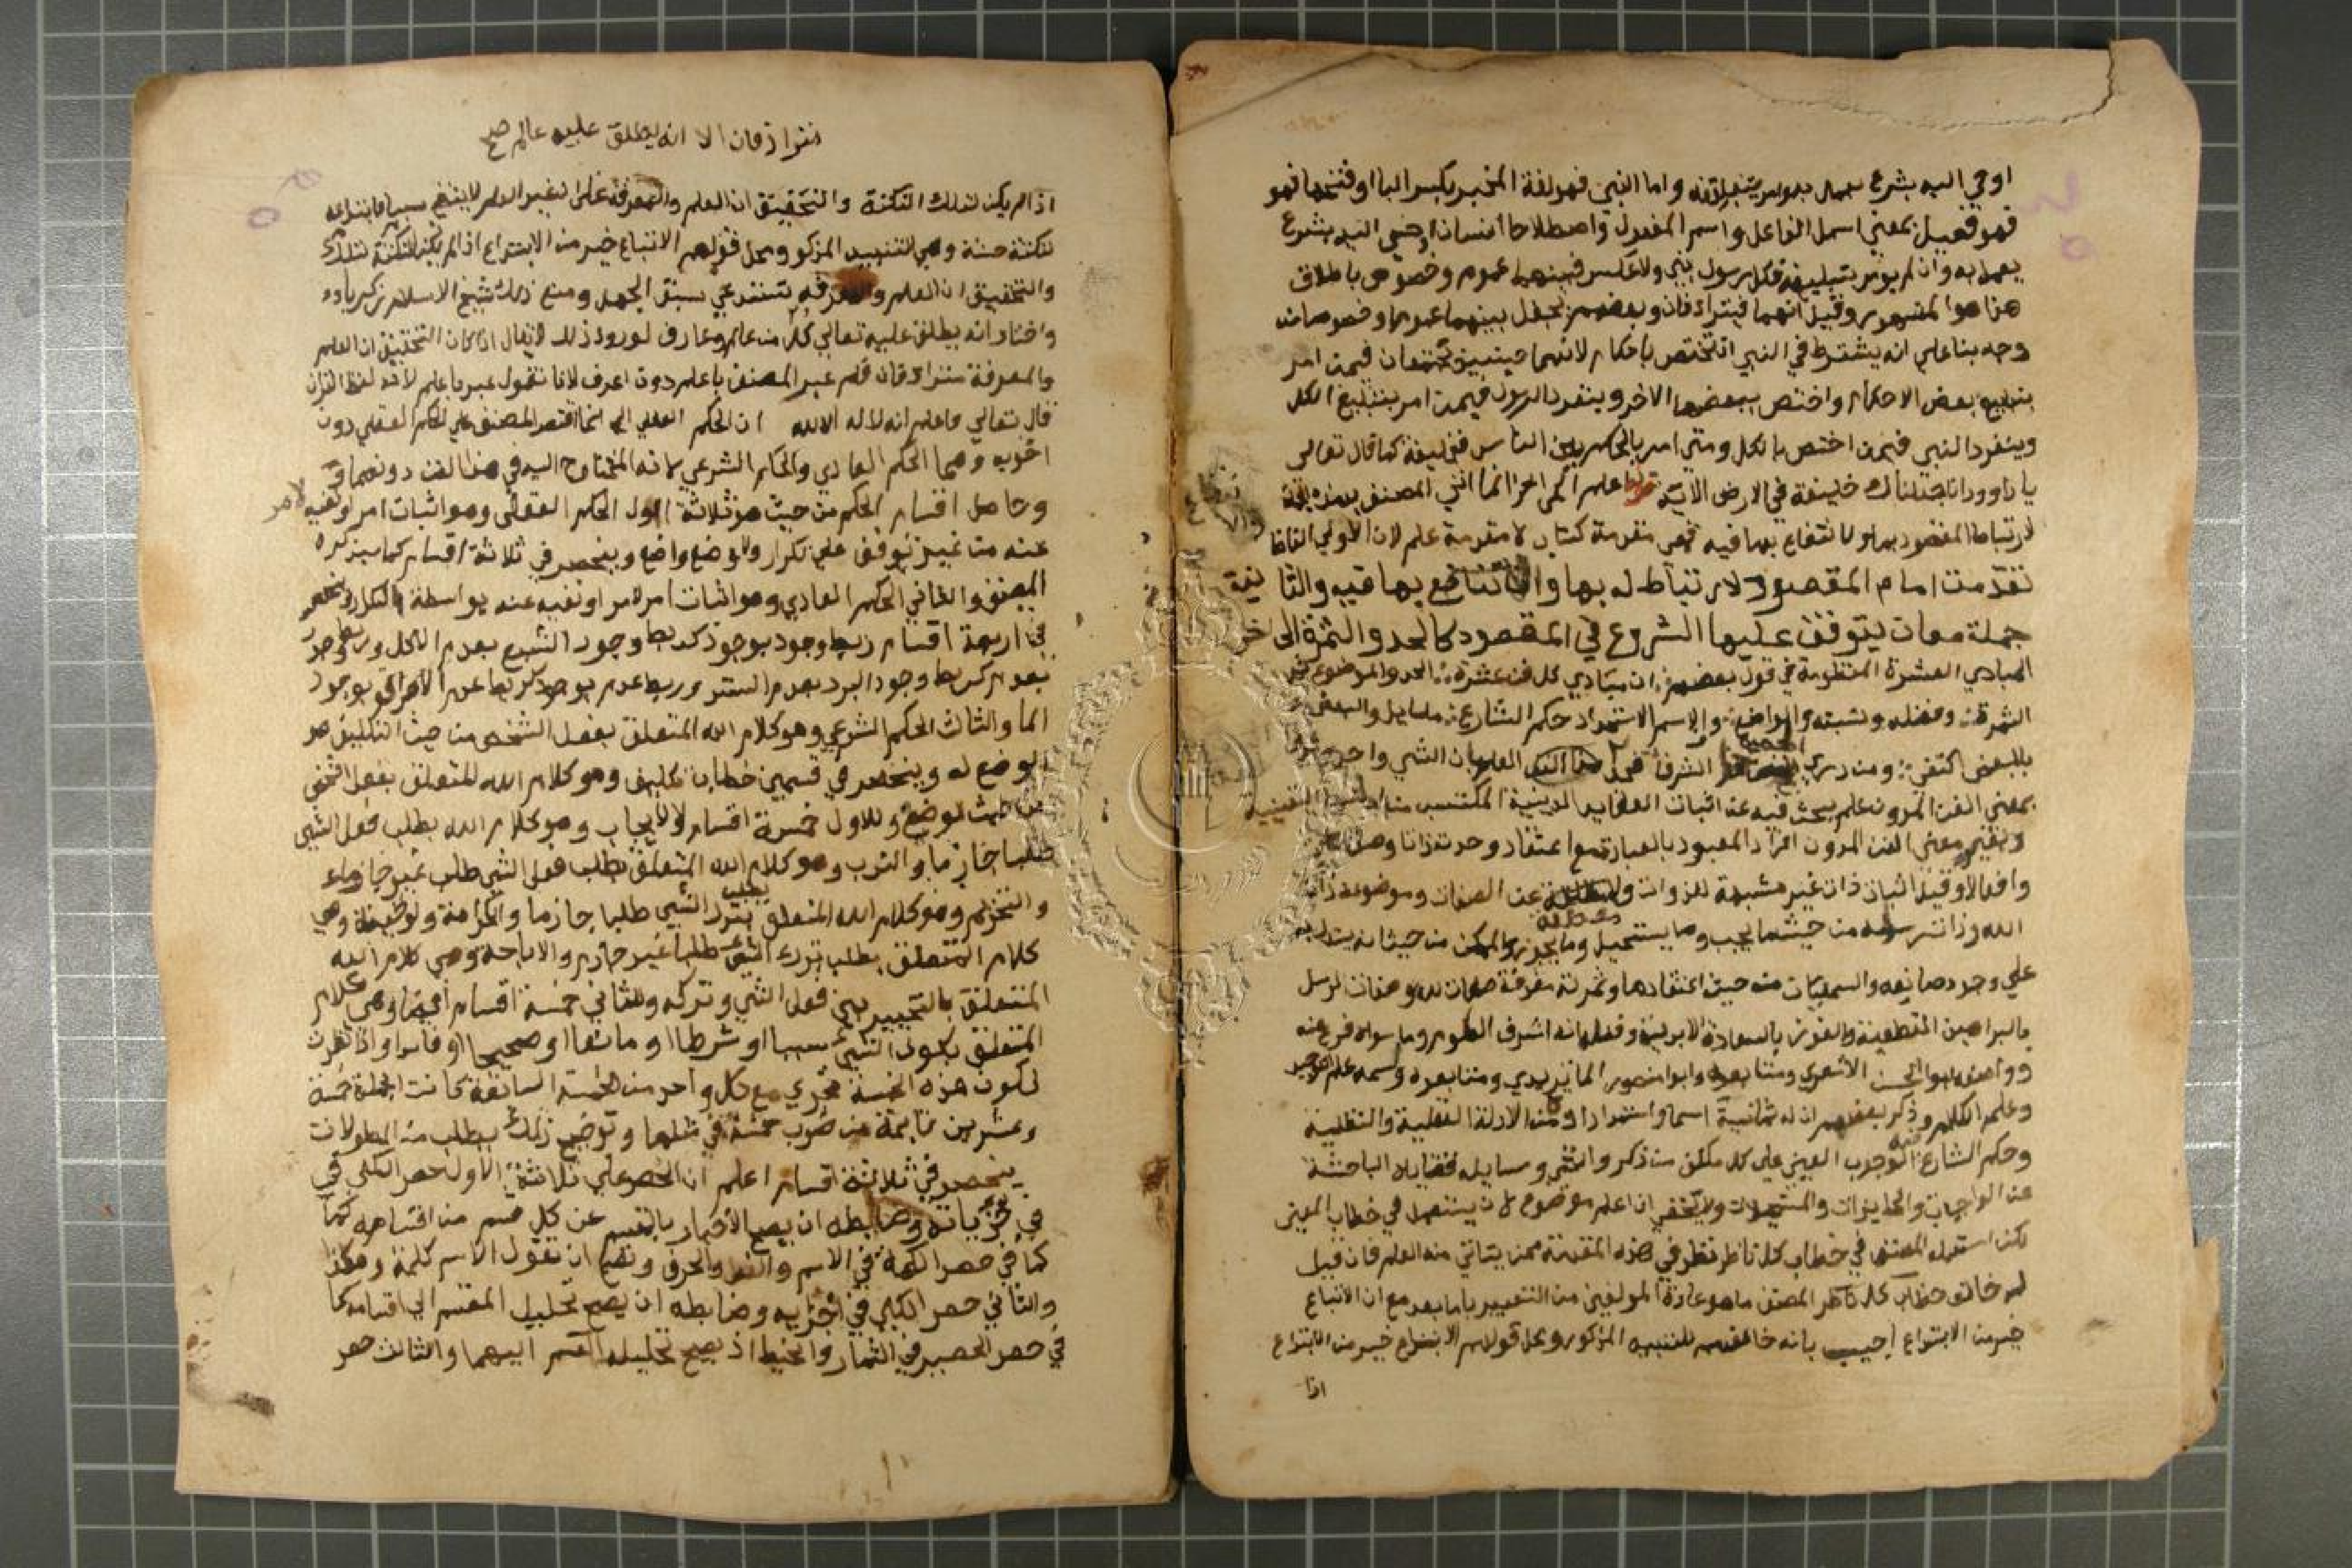 اوحي اليه بشرع يعمل به وامر بتبليغه واما النبي فهو لغة المخبر بكسر البا او فتحها فهو
فهو فعيل بمعني اسم الفاعل واسم المفعول واصطلاحا انسان اوحي اليه بشرع
يعمل به وان لم يومر بتبليغه فكل رسول نبي ولا عكس فبينهما عموم وخصوص باطلاق
هذا هو المشهور وقيل انهما مترادفان وبعضهم يجعل بينهما عموما وخصوصا من
وجه بنا علي انه يشترط في النبي ان يختص باحكام لانهما حينيذ يجتمعان فيمن امر
بتبليغ بعض الاحكام واختص ببعضها الاخر وينفرد الرسول فيمن امر بتبليغ الكل
وينفرد النبي فيمن اختص بالكل ومتي امر بالحكم بين الناس فخليفة كما قال تعالي
يا داوود انا جعلناك خليفة في الارض الاية اعلم الي اخر انما اتي المصنف بهذه
لارتباط المقصود بها والانتفاع بها فيه فهي مقدمة كتاب لا مقدمة علم لان الاولي الفاظ
تقدمت امام المقصود لارتباط له بها والانتفاع بها فيه والثانية
جملة معان يتوقف عليها الشروع في المقصود كالحد والثمرة الي اخر
المبادي العشرة المنظومة في قول بعضهم ان مبادي كل فن عشرة الحد والموضوع ثم
الثمرة وفضله ونسبته والواضع والاسم الاستمداد حكم الشارع مسايل والبعض
بالبعض اكتفي ومن دري الجميع الشرفا فحد هذا الفن
بمعني الفن المدون علم يبحث فيه عن اثبات العقايد الدينية المكتسب من ادلتها اليقينية
وبغير معني الفن المدون افراد المعبود بالعبادة مع اعتقاد وحدته ذاتا وصفات
وافعالا وقيل اثبات ذات غير مشبهة للذوات ولا معطلة عن الصفات وموضوعه ذات
الله وذات رسله من حيث ما يجب وما يستحيل وما يجوز والممكن من حيث انه يستدل به
علي وجود صانعه والسمعيات من حيث اعتقادها وثمرته معرفة صفات الله وصفات الرسل
بالبراهين القطعية والفوز بالسعادة الابدية وفضله انه اشرف العلوم وما سواه فرع عنه
وواضعه ابو الحسن الاشعري ومتابعوه وابو منصور الماتريدي ومتابعوه واسمه علم التوحيد
وعلم الكلام وذكر بعضهم ان له ثمانية اسما واستمداده من الادلة العقلية والنقلية
وحكم الشارع فيه الوجوب العيني علي كل مكلف من ذكر وانثي ومسايله قضاياه الباحثة
عن الواجبات والجايزات والمستحيلات ولا يخفي ان اعلم موضوع لان يستعمل في خطاب المعين
لكن استعمله المصنف في خطاب كل ناظر نظر في هذه المقدمة ممن يتاتي منه العلم فان قيل
لم خالف المصنف ما هو عادة المولفين من التعبير باما بعد مع ان الاتباع
خير من الابتداع اجيب بانه خالفهم للتنبيه المذكور ومحل قولهم الاتباع خير من الابتداع
اذا
مترادفان الا انه يطلق عليه عالم صح
اذا لم يكن لذلك النكتة والتحقيق ان العلم والمعرفة
لنكتة حسنة وهي التنبيه المذكور ومحل قولهم الاتباع خير من الابتداع اذا لم يكن لنكتة
والتحقيق ان العلم والمعرفة تستدعي سبق الجهل ومنع ذلك شيخ الاسلام زكريا
واختار انه يطلق عليه تعالي كل من عالم وعارف لورود ذلك لا يقال اذا كان التحقيق ان العلم
والمعرفة مترادفان فلم عبر المصنف باعلم دون اعرف لانا نقول عبر باعلم لانه لفظ القران
قال تعالي فاعلم انه لا اله الا الله ان الحكم العقلي الي انما اقتصر المصنف علي الحكم العقلي دون
اخويه وهما الحكم العادي والحكم الشرعي لانه المحتاج اليه في هذا الفن دونهما
وحاصل اقسام الحكم من حيث هو ثلاثة الاول الحكم العقلي وهو اثبات امر لامر او نفيه
عنه من غير توقف علي تكرار ولا وضع واضع وينحصر في ثلاثة اقسام كما سيذكره
المصنف والثاني الحكم العادي وهو اثبات امر لامر او نفيه عنه بواسطة التكرار وينحصر
في اربعة اقسام ربط وجود بوجود كربط وجود الشبع بوجود الاكل وربط وجود
بعدم كربط وجود البرد بعدم الستر وربط عدم بوجود كربط عدم الاحراق بوجود
الما والثالث الحكم الشرعي وهو كلام الله المتعلق بفعل الشخص من حيث التكليف او
الوضع له وينحصر في قسمين خطاب تكليف وهو كلام الله المتعلق بفعل الشخص
من حيث الوضع وللاول خمسة اقسام الايجاب وهو كلام الله بطلب فعل الشي
طلبا جازما والندب وهو كلام الله المتعلق بطلب فعل الشي طلب غير جازما
والتحريم وهو كلام الله المتعلق بطلب ترك الشي طلبا جازما والكراهة ولو خفيفة وهي
كلام المتعلق بطلب ترك الشي طلبا غير جازم والاباحة وهي كلام الله
المتعلق بالتخيير بين فعل الشي وتركه وللثاني خمسة اقسام ايضا وهي كلام
المتعلق بكون الشي سببا او شرطا او مانعا او صحيحا او فاسدا واذا نظرت
لكون هذه الخمسة تجري مع كل واحد من الخمسة السابقة كانت الجملة خمسة
وعشرين قايمة من ضرب خمسة في مثلها وتوضيح ذلك يطلب من المطولات
ينحصر في ثلاثة اقسام اعلم ان الحصر علي ثلاثة الاول حصر الكلي في
في جزياته وضابطه ان يصح الاخبار بالمقسم عن كل قسم من اقسامه كما
كما في حصر الكلمة في الاسم والفعل والحرف ونصح ان نقول الاسم كلمة وهكذا
والثاني حصر الكلي في اجزايه وضابطه ان يصح تحليل المقسم الي اقسامه كما
في حصر الحصير في الثمار والخيط اذ يصح تحليله اليهما والثالث حصر